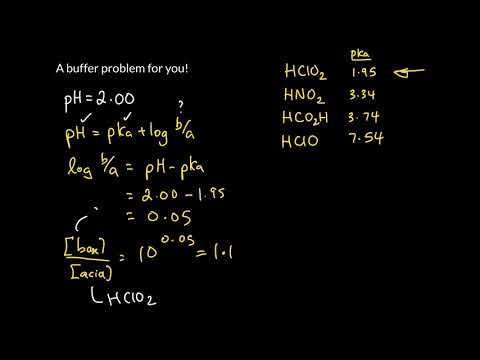 A buffer problem for you!
pH = 2.00
?
pH = pka + log b/a
log b/a = pH - pka
= 2.00 - 1.95
= 0.05
[base] / [acid] = 10^0.05 = 1.1
HClO2
pka
HClO2 1.95 ←
HNO2 3.34
HCO2H 3.74
HClO 7.54